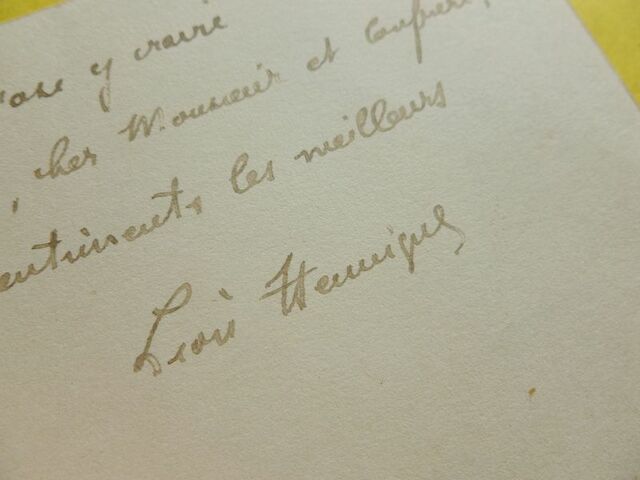 ose y croire
, cher Monsieur et Confrère,
sentiments les meilleurs
Léon Hennique